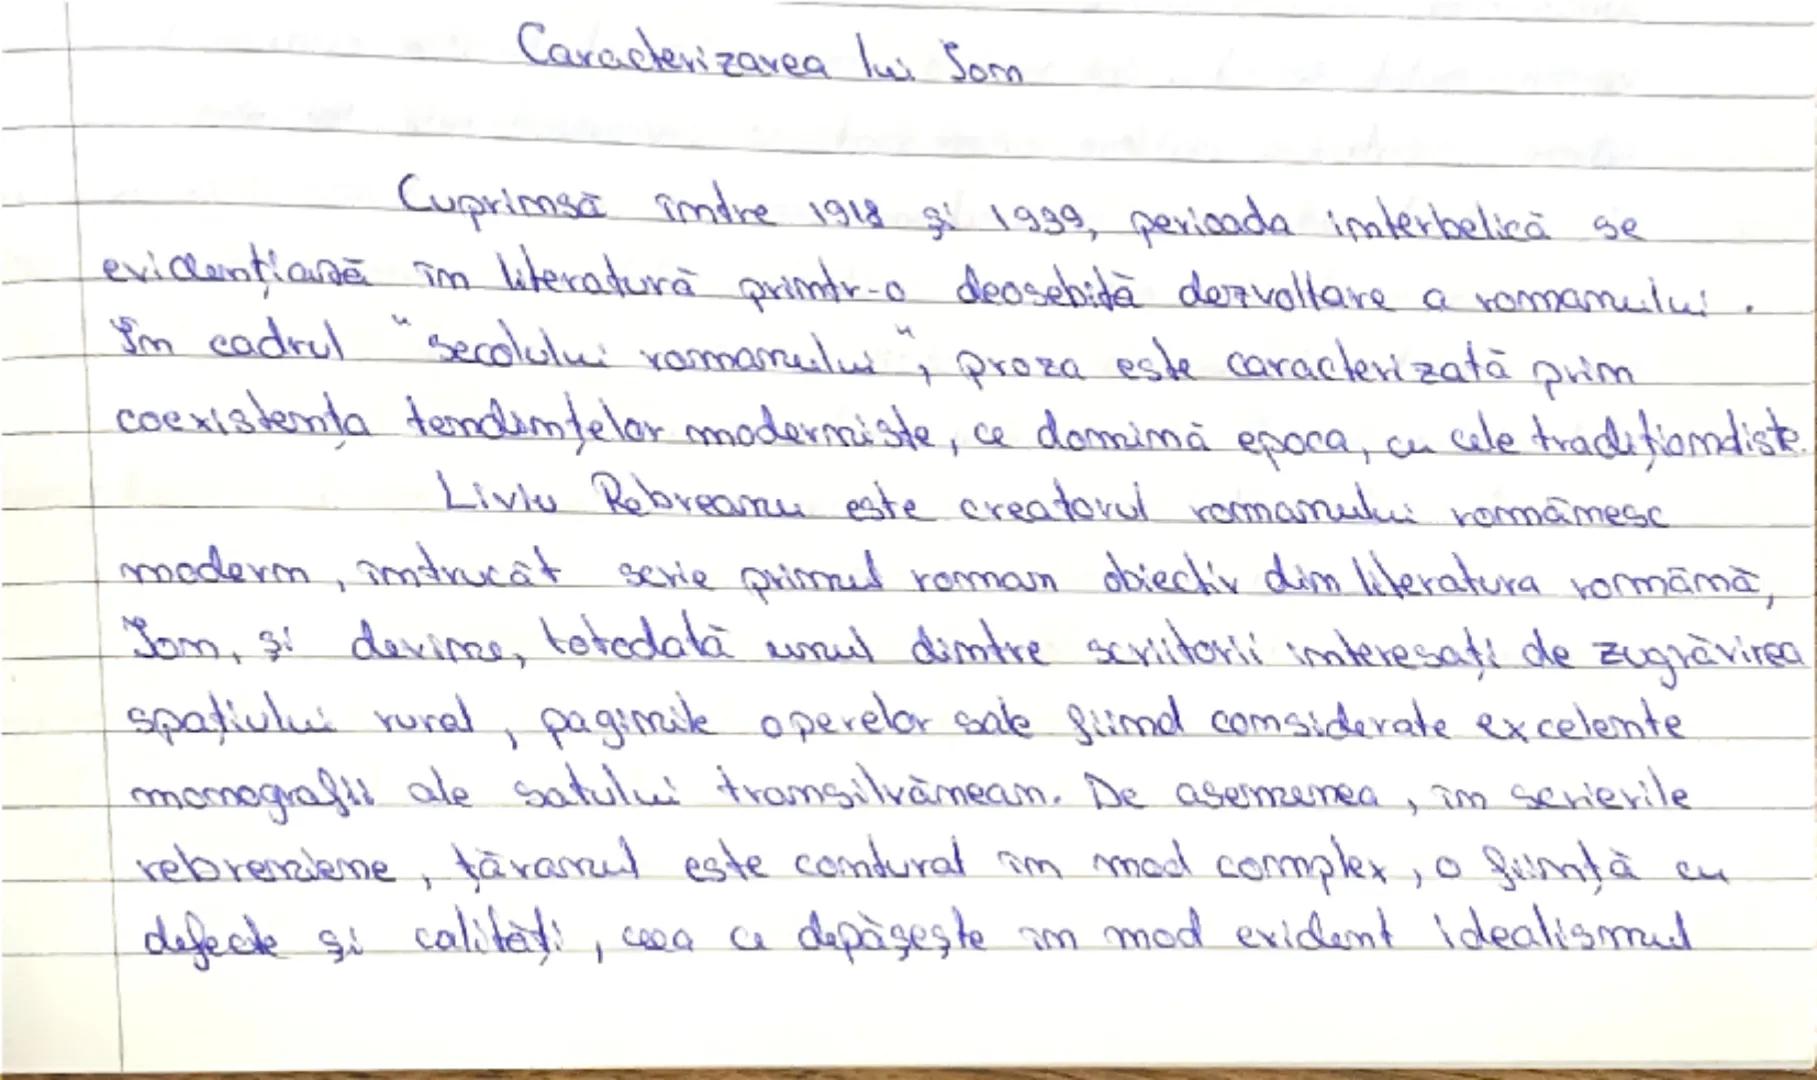 Caracterizarea lui Ion
Cuprinsă între 1918 și 1939, perioada interbelică se
evidențiază în literatură printr-o deosebită dezvoltare a romanului.
În cadrul "secolului romanului", proza este caracterizată prin
coexistența tendințelor moderniste, ce domină epoca, cu cele tradiționaliste.
Liviu Rebreanu este creatorul romanului românesc
modern, întrucât scrie primul roman obiectiv din literatura română,
Ion, și devine, totodată unul dintre scriitorii interesați de zugrăvirea
spațiului rural, paginile operelor sale fiind considerate excelente
monografii ale satului transilvănean. De asemenea, în scrierile
rebreniene, țăranul este conturat în mod complex, o ființă cu
defecte și calități, ceea ce depășește în mod evident idealismul